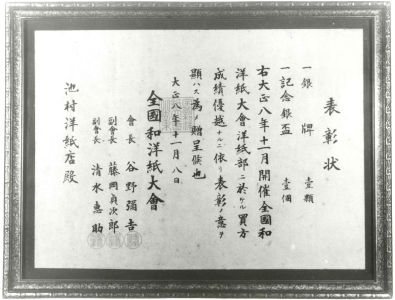 表彰状
一銀牌 壹顆
一記念銀盃 壹個
右大正八年十一月開催全國和
洋紙大會洋紙部ニ於ケル買方
成績優越ナルニ依リ表彰ノ意ヲ
顯ハス為メ贈呈候也
大正八年十一月八日
全國和洋紙大會
會長 谷野彌吉
副會長 藤岡貞次郎
副會長 清水惠助
池村洋紙店殿